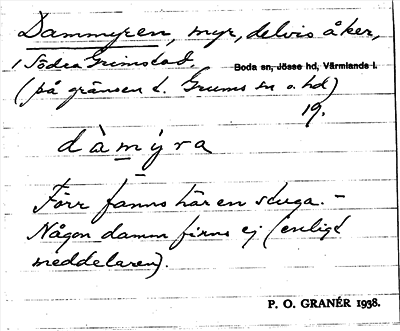 Dammyren, myr, delvis åker,
i Södra Grimstad.
Boda sn, Jösse hd, Värmlands l.
(på gränsen t. Grums sn o. hd)
19.
dàmýra
Förr fanns här en stuga. –
Någon damm finns ej (enligt
meddelaren).
P. O. GRANÉR 1938.